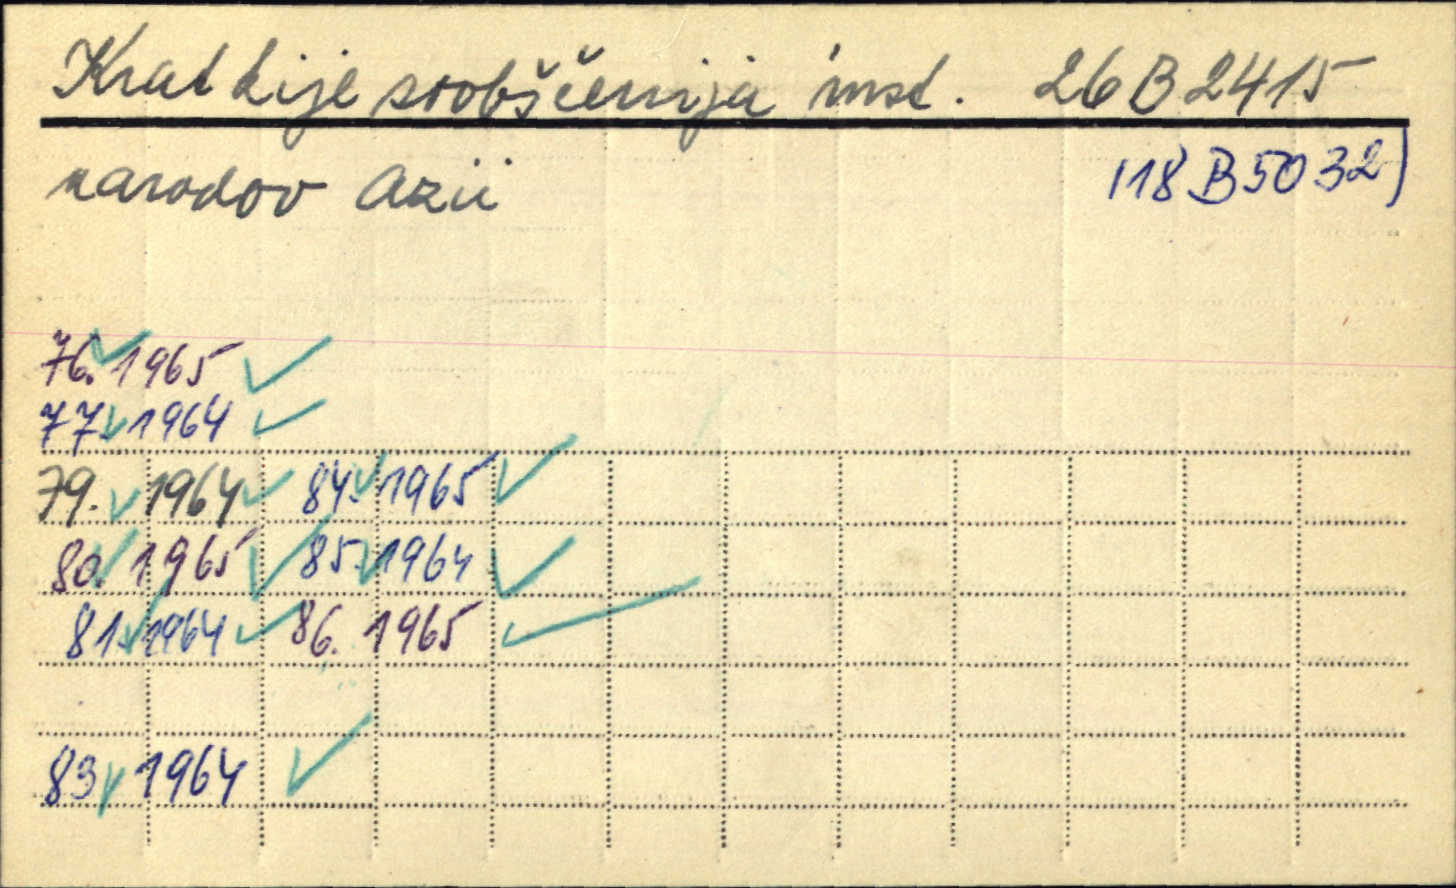 Kratkije soobščenija inst. 26 B 2415
narodov Azii 118 B 5032
76. 1965
77. 1964
79. 1964 84. 1965
80. 1965 85. 1964
81. 1964 86. 1965
83. 1964